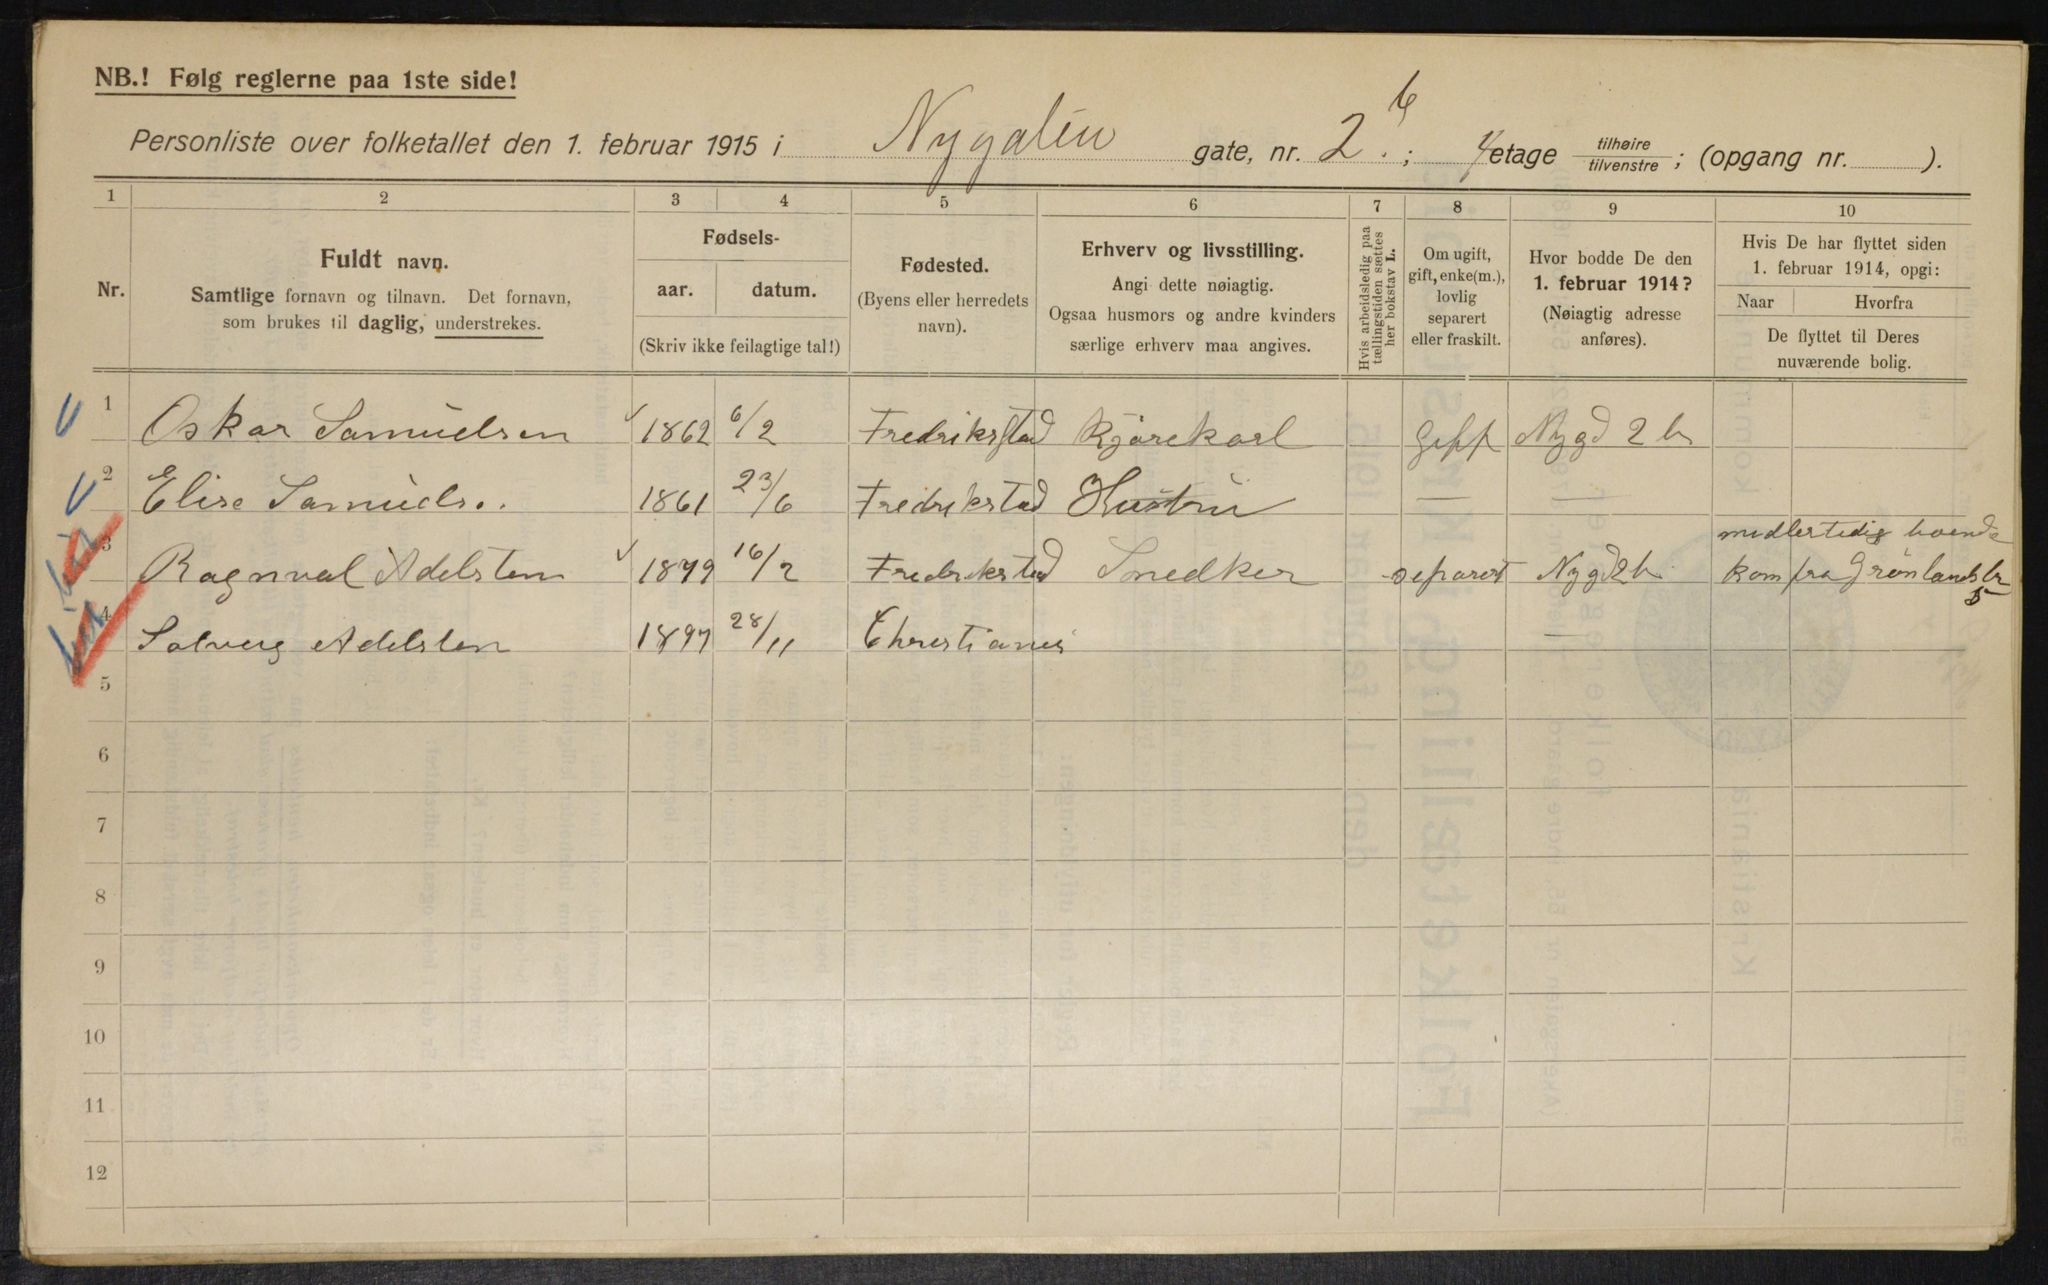 NB.! Følg reglerne paa 1ste side!
Personliste over folketallet den 1. februar 1915 i Nygaten gate, nr. 2 b.; 4 etage tilhøire tilvenstre; (opgang nr. ).
1 2 3 4 5 6 7 8 9 10
Nr.
Fuldt navn.
Samtlige fornavn og tilnavn. Det fornavn,
som brukes til daglig, understrekes.
Fødsels-
aar. datum.
(Skriv ikke feilagtige tal!)
Fødested.
(Byens eller herredets
navn).
Erhverv og livsstilling.
Angi dette nøiagtig.
Ogsaa husmors og andre kvinders
særlige erhverv maa angives.
Hvis arbeidsledig paa
tællingstiden sættes
her bokstav L.
Om ugift,
gift, enke(m.),
lovlig
separert
eller fraskilt.
Hvor bodde De den
1. februar 1914?
(Nøiagtig adresse
anføres).
Hvis De har flyttet siden
1. februar 1914, opgi:
Naar Hvorfra
De flyttet til Deres
nuværende bolig.
1 Oskar Samuelsen 1862 6/2 Fredrikstad Kjørekarl Gift Nygd 2 b
2 Elise Samuels. 1861 23/6 Fredrikstad Hustru — —
midlertidig boende
3 Ragnval Adelsten 1879 16/2 Fredrikstad Snedker separert Nygd 2 b. kom fra Grønlandsbr
5
4 Solveig Adelsten 1897 28/11 Christiania —
5
6
7
8
9
10
11
12